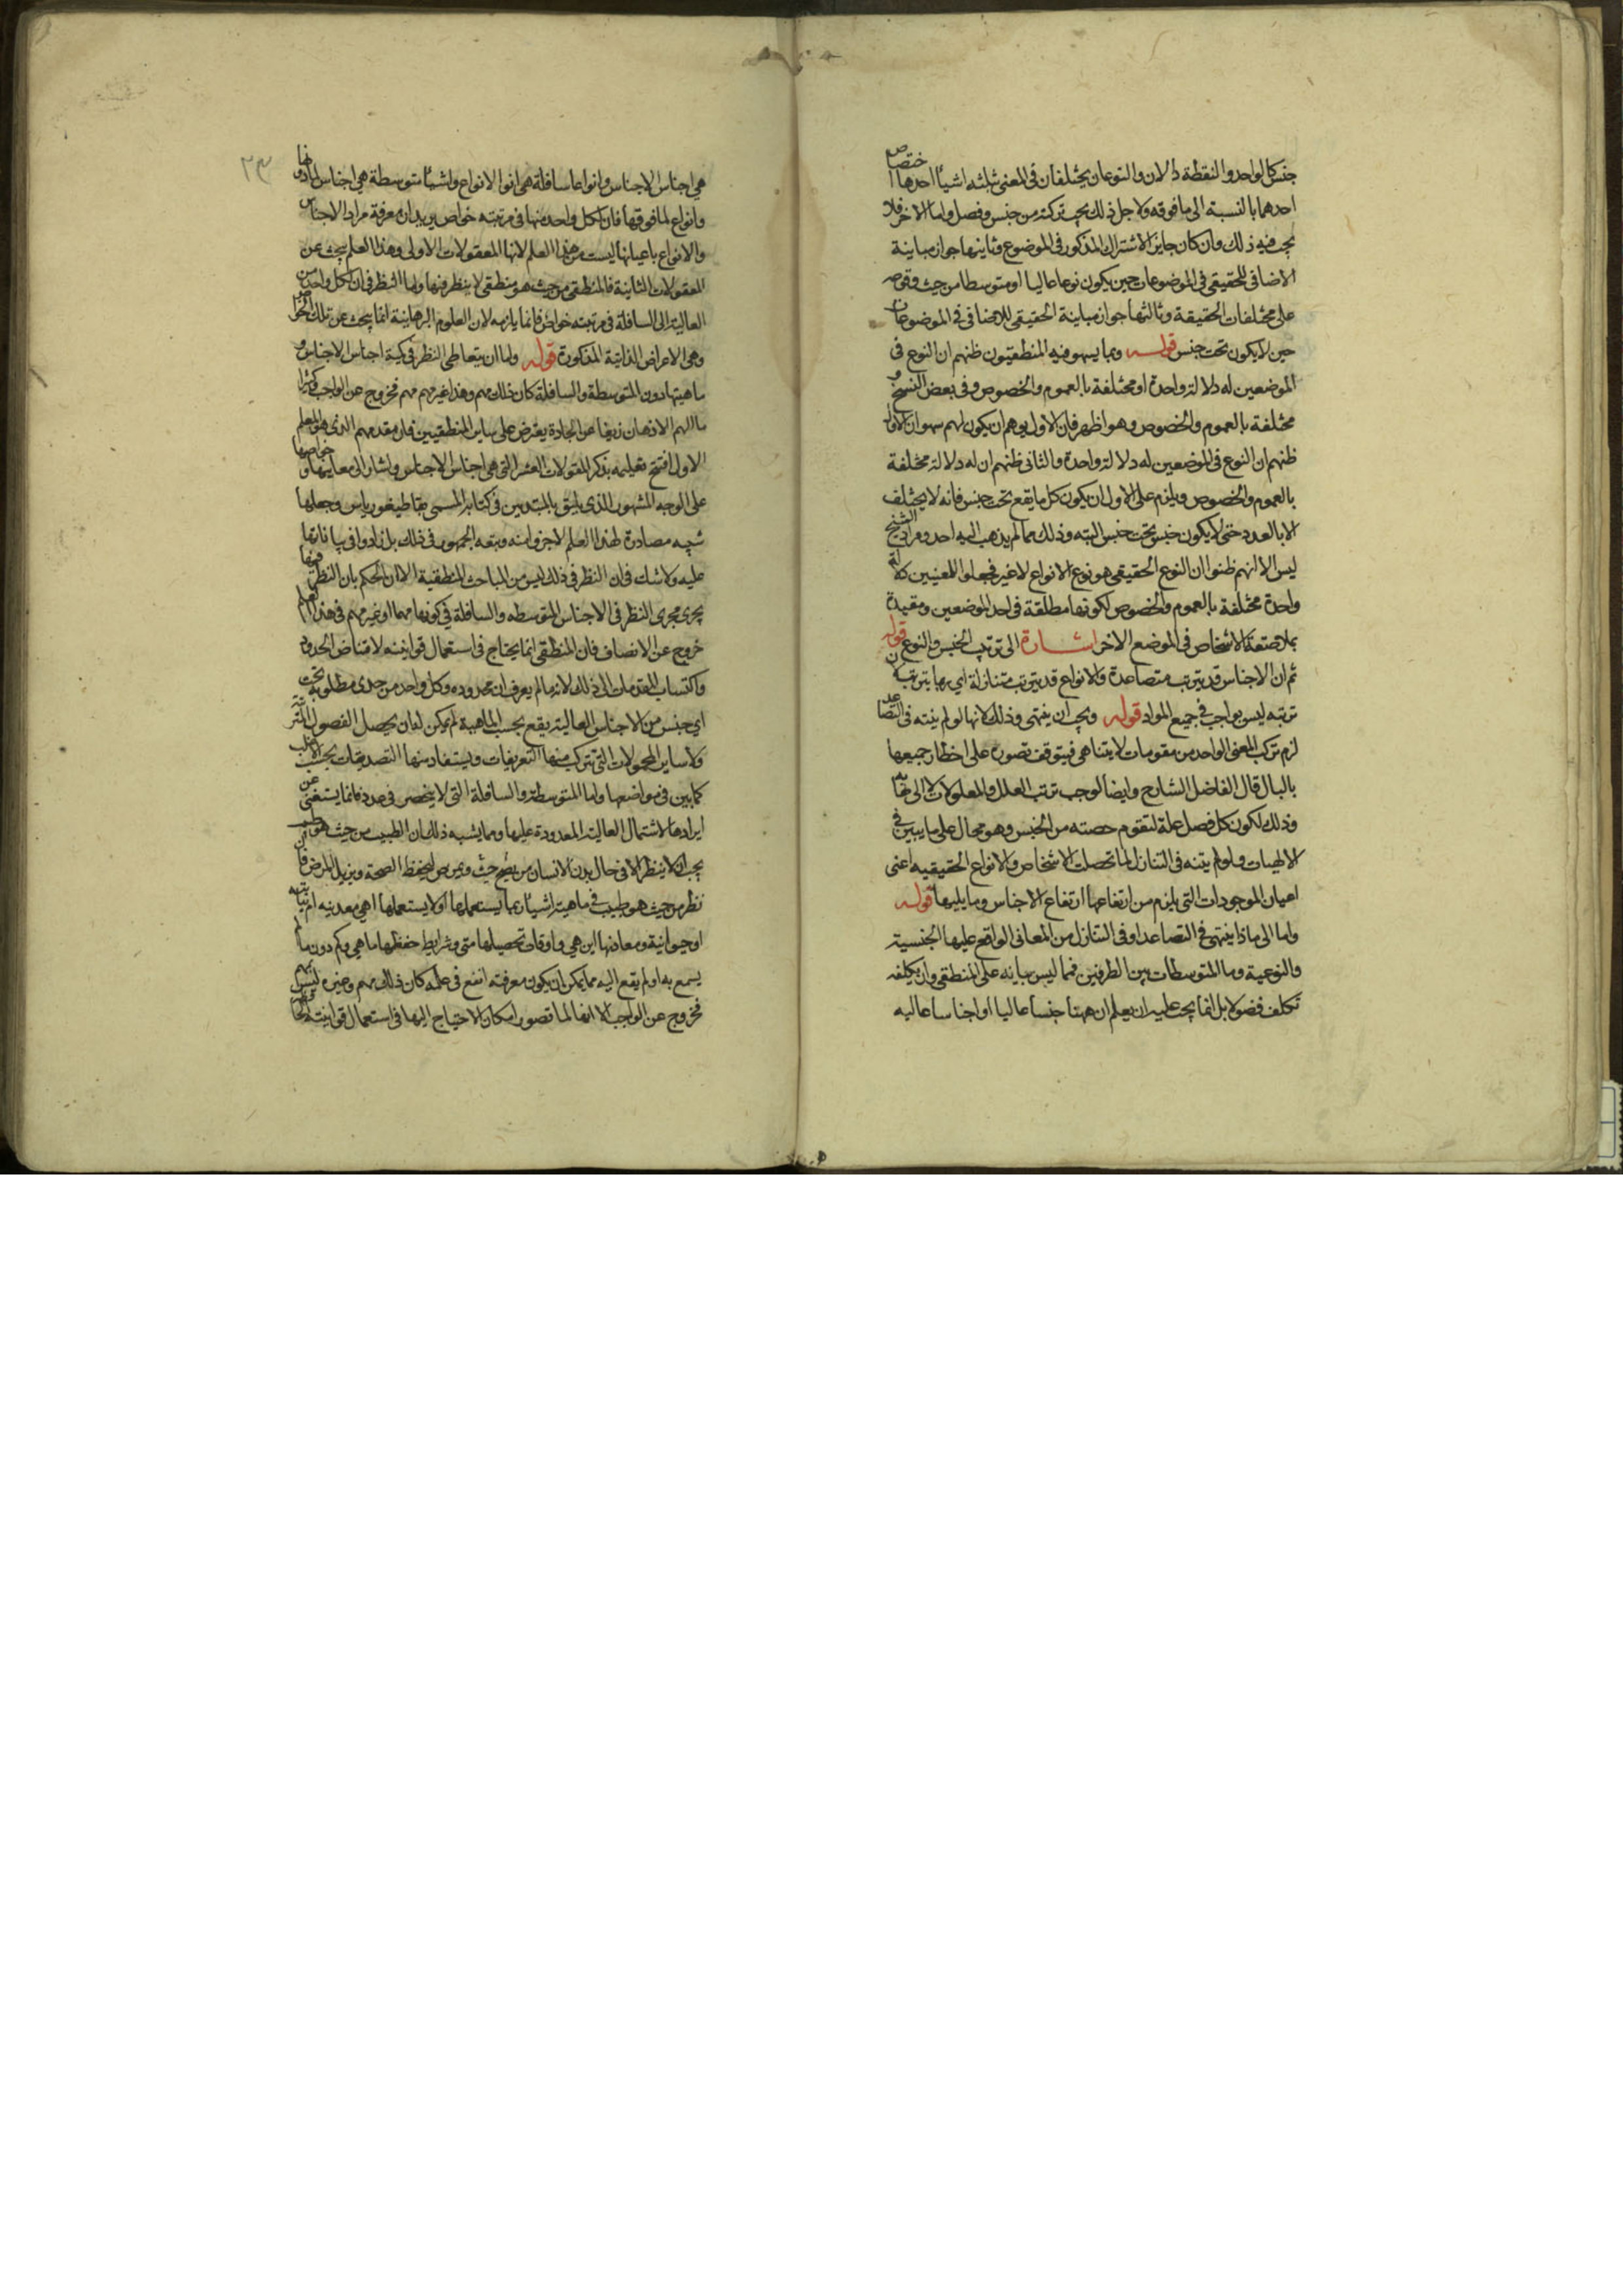 جنس كالواحد والنقطة والان والنوعان يختلفان في المعنى بثلثه اشياء احدها اختصاص
احدهما بالنسبة الى ما فوقه ولاجل ذلك يجب تركبه من جنس وفصل واما الاخر فلا
يجب فيه ذلك وان كان جايز الاشتراك المذكور في الموضوع وثانيها جواز مباينة
الاضافى للحقيقى في الموضوعات حين يكون نوعا عاليا او متوسطا من حيث وقوعه
على مختلفات الحقيقة وثالثها جواز مباينة الحقيقى للاضافى في الموضوعات
حين لا يكون تحت جنس قوله ومما يسهو فيه المنطقيون ظنهم ان النوع فى
الموضعين له دلالة واحدة او مختلفة بالعموم والخصوص وفى بعض النسخ و
مختلفة بالعموم والخصوص وهو اظهر فان الاول يوهم ان يكون لهم سهوان الاول
ظنهم ان النوع فى الموضعين له دلالة واحدة والثانى ظنهم ان له دلالة مختلفة
بالعموم والخصوص ويلزم على الاول ان يكون كل ما يقع تحت جنس فانه لا يختلف
الا بالعدد حتى لا يكون جنس تحت جنس البته وذلك مما لم يذهب اليه احد ومراد الشيخ
ليس الا انهم ظنوا ان النوع الحقيقى هو نوع الانواع لا غير فجعلوا للمعنيين دلالة
واحدة مختلفة بالعموم والخصوص لكونها مطلقة فى احد الموضعين ومقيدة
بملاصقة الاشخاص فى الموضع الاخر اشارة الى ترتب الجنس والنوع قوله
ثم ان الاجناس قد يترتب متصاعدة والانواع قد يترتب متنازلة اي ربما يترتب لان
ترتبه ليس بواجب فى جميع المواد قوله ويجب ان ينتهى وذلك لانها لو لم ينته فى التصاعد
لزم تركب المعنى الواحد من مقومات لا يتناهى فيتوقف تصوره على اخطار جميعها
بالبال قال الفاضل الشارح وايضا لوجب ترتب العلل والمعلولات لا الى نهاية
وذلك لكون كل فصل علة لتقوم حصته من الجنس وهو محال على ما يبين فى
الالهيات ولو لم ينته فى التنازل لما تحصلت الاشخاص والانواع الحقيقيه اعنى
اعيان الموجودات التى يلزم من ارتفاعها ارتفاع الاجناس وما يليها قوله
واما الى ماذا ينتهى فى التصاعد او فى التنازل من المعانى الواقع عليها الجنسية
والنوعية وما المتوسطات بين الطرفين فمما ليس بيانه على المنطقى وان تكلفه
تكلف فضولا بل انما يجب عليه ان يعلم ان ههنا جنسا عاليا او اجناسا عاليه
٢٣
هى اجناس الاجناس وانواعا سافلة هى انواع الانواع واشياء متوسطة هى اجناس لما دونها
وانواع لما فوقها فان لكل واحد منها فى مرتبته خواص يريد ان معرفة مراد الاجناس
والانواع باعيانها ليست من هذا العلم لانها المعقولات الاولى وهذا العلم يبحث عن
المعقولات الثانية فالمنطقى من حيث هو منطقى لا ينظر فيها واما النظر فى ان لكل واحد من
العالية الى السافلة فى مرتبته خواص فانما يلزمه لان العلوم البرهانية انما يبحث عن تلك الخواص
وهى الاعراض الذاتية المذكورة قوله واما ان يتعاطى النظر فى كمية اجناس الاجناس و
ماهيتها دون المتوسطة والسافلة كان ذلك مهم وهذا غير مهم فخروج عن الواجب وكثيرا
ما الهم الاذهان زيغا عن الجادة يعترض على ساير المنطقيين فان مقدمهم الذى هو المعلم
الاول افتتح تعليمه بذكر المقولات العشر التى هى اجناس الاجناس واشار الى معانيها وخواصها
على الوجه المشهور الذى يليق بالمبتديين فى كتابه المسمى بقاطيغورياس وجعلها
شبيه مصادرة لهذا العلم لا جزوا منه وتبعه الجمهور فى ذلك بل زادوا فى بياناتها
عليه ولا شك فى ان النظر فى ذلك ليس من المباحث المنطقية الا ان الحكم بان النظر فيها
يجرى مجرى النظر فى الاجناس المتوسطه والسافلة فى كونها مهما او غير مهم فى هذا العلم
خروج عن الانصاف فان المنطقى انما يحتاج فى استعمال قوانينه لاقتناص الحدود
واكتساب المقدمات الى ذلك لانه ما لم يعرف ان محدوده وكل واحد من حدى مطلوبه تحت
اي جنس من الاجناس العالية يقع بحسب الماهية لم يمكن له ان يحصل الفصول المترتبة
ولا ساير المحمولات التى يتركب منها التعريفات ويستفاد منها التصديقات بحسب الاغلب
كما بين فى مواضعها واما المتوسطة والسافلة التى لا ينحصر فى عدد فانما يستغنى عن
ايرادها لاشتمال العالية المعدودة عليها ومما يشبه ذلك ان الطبيب من حيث هو طبيب
يجب ان لا ينظر الا فى حال بدن الانسان من حيث يصح ويمرض ليحفظ الصحة ويزيل المرض فان
نظر من حيث هو طبيب فى ماهية اشياء ربما يستعملها او لا يستعملها اهى معدنيه ام نباتيه
او حيوانية ومعادنها اين هى واوقات تحصيلها متى وشرايط حفظها ما هى وكم دون ما لم
يسمع به او لم يقع اليه مما يمكن ان يكون معرفته انفع فى علمه كان ذلك مهم وغيره ليس بمهم
فخروج عن الواجب الا انه لما تصور امكان الاحتياج اليها فى استعمال قوانينه